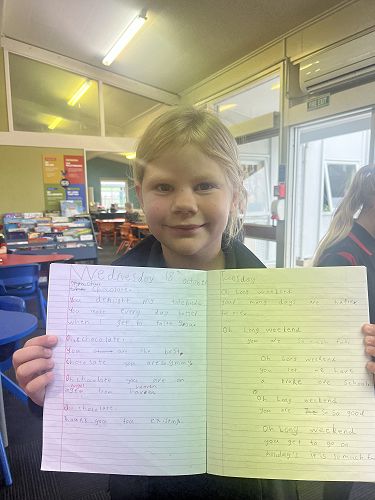 Wednesday 18th october
chocolate.
You delight my
You make every day better
when I get to taste you
Oh chocolate.
You are the best
chocolate you are yummy
Oh chocolate you are an
angel from heaven
Oh chocolate.
thank you for existing
Tuesday
Oh Long weekend
your many days are better
Oh Long weekend
you are so much fun
Oh Long weekend
you let me have
a break from school
Oh Long weekend
you are so so good
Oh Long weekend
you get to go on
holiday's it is so much fun
EXIT